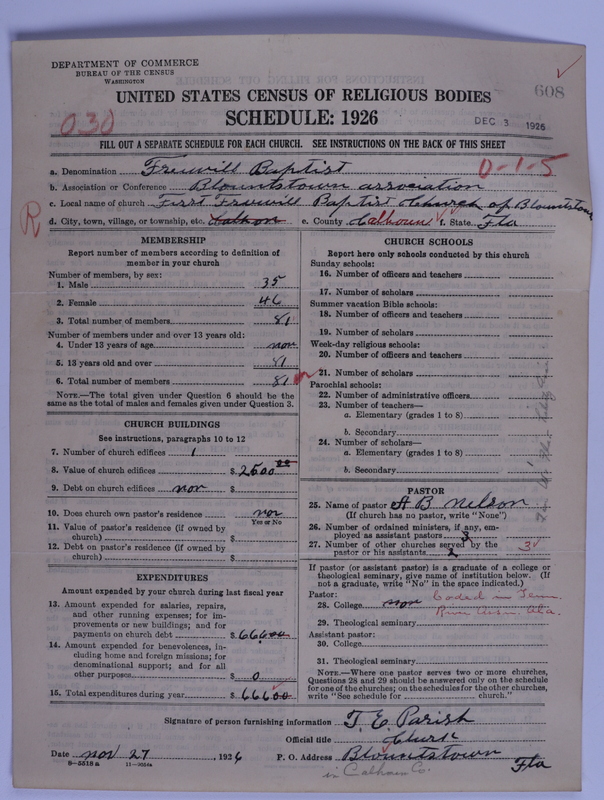 DEPARTMENT OF COMMERCE
BUREAU OF THE CENSUS
WASHINGTON
608
UNITED STATES CENSUS OF RELIGIOUS BODIES
SCHEDULE: 1926
DEC 3 1926
030
FILL OUT A SEPARATE SCHEDULE FOR EACH CHURCH. SEE INSTRUCTIONS ON THE BACK OF THIS SHEET
a. Denomination Freewill Baptist 0-1-5
b. Association or Conference Blountstown association
c. Local name of church First Freewill Baptist Church of Blountstown
R
d. City, town, village, or township, etc. Calhoun e. County Calhoun f. State Fla
MEMBERSHIP
Report number of members according to definition of
member in your church
Number of members, by sex:
1. Male 35
2. Female 46
3. Total number of members 81
Number of members under and over 13 years old:
4. Under 13 years of age non
5. 13 years old and over 81
6. Total number of members 81
NOTE.—The total given under Question 6 should be the
same as the total of males and females given under Question 3.
CHURCH BUILDINGS
See instructions, paragraphs 10 to 12
7. Number of church edifices 1
8. Value of church edifices $2500.00
9. Debt on church edifices nor $
10. Does church own pastor's residence nor
Yes or No
11. Value of pastor's residence (if owned by
church) $
12. Debt on pastor's residence (if owned by
church) $
EXPENDITURES
Amount expended by your church during last fiscal year
13. Amount expended for salaries, repairs,
and other running expenses; for im-
provements or new buildings; and for
payments on church debt $66600
14. Amount expended for benevolences, in-
cluding home and foreign missions; for
denominational support; and for all
other purposes $ 0
15. Total expenditures during year $66600
CHURCH SCHOOLS
Report here only schools conducted by this church
Sunday schools:
16. Number of officers and teachers
17. Number of scholars
Summer vacation Bible schools:
18. Number of officers and teachers
19. Number of scholars
Week-day religious schools:
20. Number of officers and teachers
21. Number of scholars
Parochial schools:
22. Number of administrative officers
23. Number of teachers—
a. Elementary (grades 1 to 8)
b. Secondary
24. Number of scholars—
a. Elementary (grades 1 to 8)
b. Secondary
PASTOR
25. Name of pastor H B Nelson
(If church has no pastor, write "None")
26. Number of ordained ministers, if any, em-
ployed as assistant pastors 3
27. Number of other churches served by the
pastor or his assistants 2 3
If pastor (or assistant pastor) is a graduate of a college or
theological seminary, give name of institution below. (If
not a graduate, write "No" in the space indicated.)
Pastor: Coded in Tenn.
28. College nor River Assn. Ala.
29. Theological seminary
Assistant pastor:
30. College
31. Theological seminary
NOTE.—Where one pastor serves two or more churches,
Questions 28 and 29 should be answered only on the schedule
for one of the churches; on the schedules for the other churches,
write "See schedule for church."
Signature of person furnishing information T. E. Parish
Official title Clurk
Date nov 27, 1926 P. O. Address Blountstown Fla
8-5518a 11-9554a
in Calhoun Co.